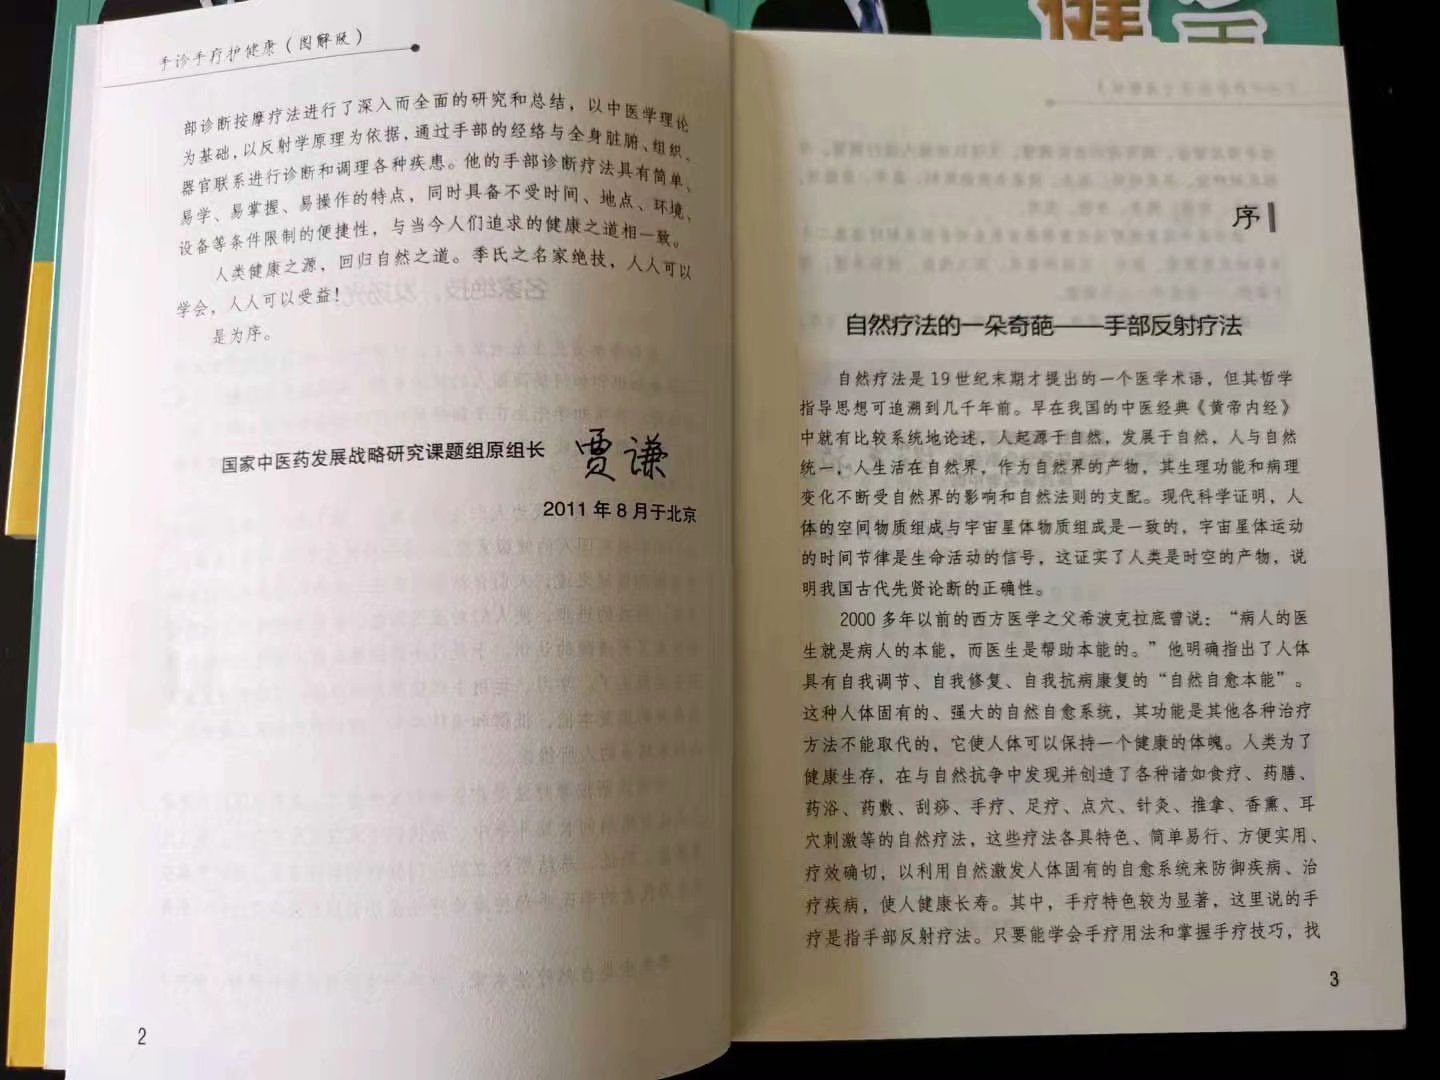 手诊手疗护健康（图解版）
部诊断按摩疗法进行了深入而全面的研究和总结，以中医学理论
为基础，以反射学原理为依据，通过手部的经络与全身脏腑、组织、
器官联系进行诊断和调理各种疾患。他的手部诊断疗法具有简单、
易学、易掌握、易操作的特点，同时具备不受时间、地点、环境、
设备等条件限制的便捷性，与当今人们追求的健康之道相一致。
人类健康之源，回归自然之道。季氏之名家绝技，人人可以
学会，人人可以受益！
是为序。
国家中医药发展战略研究课题组原组长 贾谦
2011 年 8 月于北京
2
健
手
序
自然疗法的一朵奇葩——手部反射疗法
自然疗法是 19 世纪末期才提出的一个医学术语，但其哲学
指导思想可追溯到几千年前。早在我国的中医经典《黄帝内经》
中就有比较系统地论述，人起源于自然，发展于自然，人与自然
统一，人生活在自然界，作为自然界的产物，其生理功能和病理
变化不断受自然界的影响和自然法则的支配。现代科学证明，人
体的空间物质组成与宇宙星体物质组成是一致的，宇宙星体运动
的时间节律是生命活动的信号，这证实了人类是时空的产物，说
明我国古代先贤论断的正确性。
2000 多年以前的西方医学之父希波克拉底曾说：“病人的医
生就是病人的本能，而医生是帮助本能的。”他明确指出了人体
具有自我调节、自我修复、自我抗病康复的“自然自愈本能”。
这种人体固有的、强大的自然自愈系统，其功能是其他各种治疗
方法不能取代的，它使人体可以保持一个健康的体魄。人类为了
健康生存，在与自然抗争中发现并创造了各种诸如食疗、药膳、
药浴、药敷、刮痧、手疗、足疗、点穴、针灸、推拿、香熏、耳
穴刺激等的自然疗法，这些疗法各具特色、简单易行、方便实用、
疗效确切，以利用自然激发人体固有的自愈系统来防御疾病、治
疗疾病，使人健康长寿。其中，手疗特色较为显著，这里说的手
疗是指手部反射疗法。只要能学会手疗用法和掌握手疗技巧，找
3